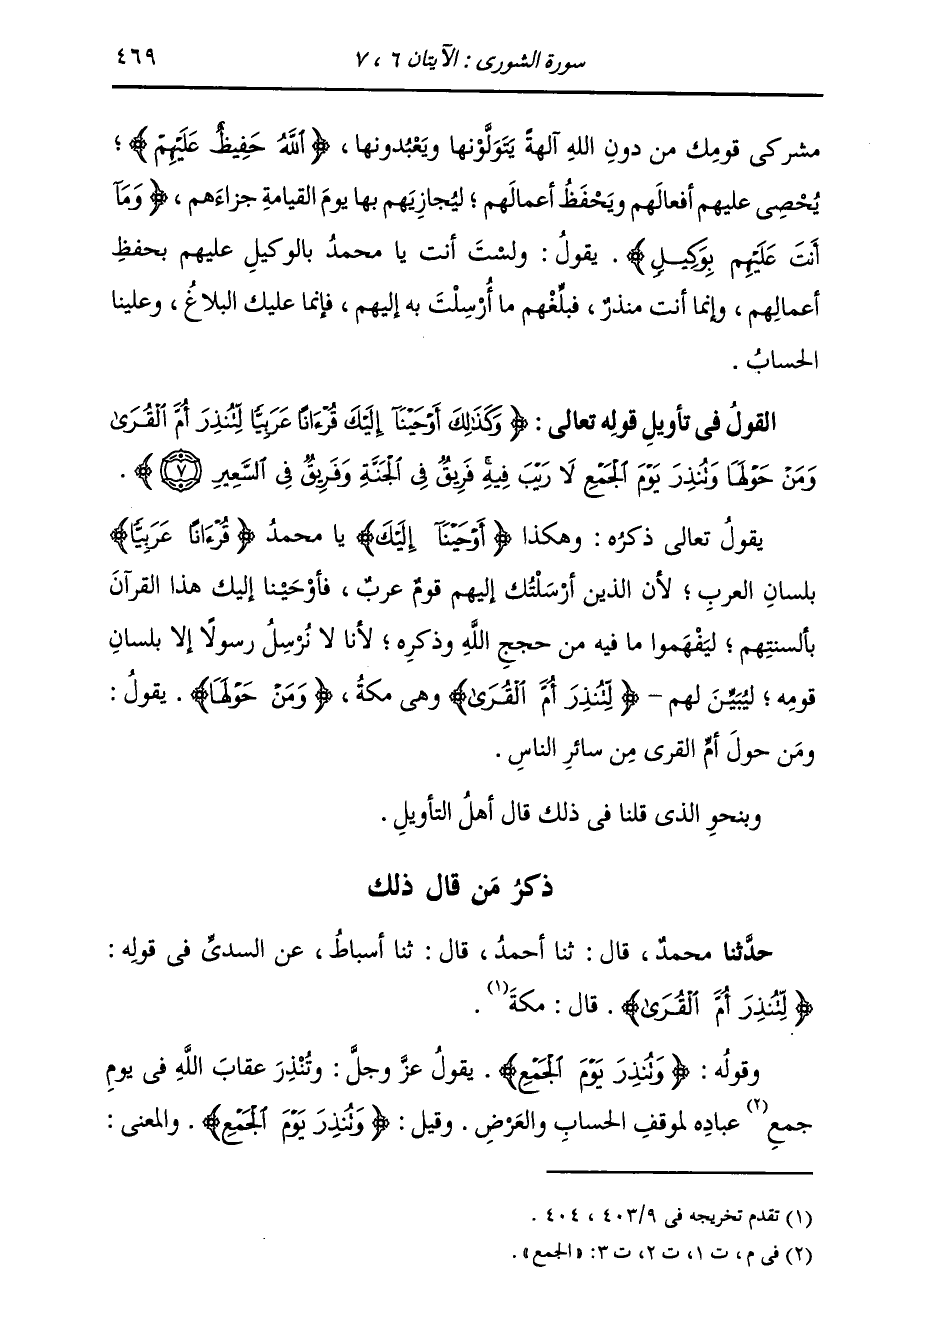 سورة الشورى : الآيتان ٦ ، ٧
٤٦٩
مشركى قومِك من دونِ اللهِ آلهةً يَتَوَلَّوْنها ويَعْبُدونها ، ﴿ ٱللَّهُ حَفِيظٌ عَلَيْهِمْ ﴾ ؛
يُحْصِى عليهم أفعالَهم ويَحْفَظُ أعمالَهم ؛ ليُجازِيَهم بها يومَ القيامةِ جزاءَهم ، ﴿ وَمَآ
أَنتَ عَلَيْهِم بِوَكِيلٍ ﴾ . يقولُ : ولسْتَ أنت يا محمدُ بالوكيلِ عليهم بحفظِ
أعمالِهم ، وإنما أنت منذرٌ ، فبلِّغْهم ما أُرْسِلْتَ به إليهم ، فإنما عليك البلاغُ ، وعلينا
الحسابُ .
القولُ فى تأويلِ قولِه تعالى : ﴿ وَكَذَٰلِكَ أَوْحَيْنَآ إِلَيْكَ قُرْءَانًا عَرَبِيًّا لِّتُنذِرَ أُمَّ ٱلْقُرَىٰ
وَمَنْ حَوْلَهَا وَتُنذِرَ يَوْمَ ٱلْجَمْعِ لَا رَيْبَ فِيهِۚ فَرِيقٌ فِى ٱلْجَنَّةِ وَفَرِيقٌ فِى ٱلسَّعِيرِ ٧ ﴾ .
يقولُ تعالى ذكرُه : وهكذا ﴿ أَوْحَيْنَآ إِلَيْكَ ﴾ يا محمدُ ﴿ قُرْءَانًا عَرَبِيًّا ﴾
بلسانِ العربِ ؛ لأن الذين أرْسَلْتُك إليهم قومٌ عربٌ ، فأوْحَيْنا إليك هذا القرآنَ
بألسنتِهم ؛ ليَفْهَموا ما فيه من حججِ اللَّهِ وذكرِه ؛ لأنا لا نُرْسِلُ رسولًا إلا بلسانِ
قومِه ؛ ليُبَيِّنَ لهم – ﴿ لِّتُنذِرَ أُمَّ ٱلْقُرَىٰ ﴾ وهى مكةُ ، ﴿ وَمَنْ حَوْلَهَا ﴾ . يقولُ :
ومَن حولَ أمِّ القرى مِن سائرِ الناسِ .
وبنحوِ الذى قلنا فى ذلك قال أهلُ التأويلِ .
ذكرُ مَن قال ذلك
حدَّثنا محمدٌ ، قال : ثنا أحمدُ ، قال : ثنا أسباطُ ، عن السدىِّ فى قولِه :
﴿ لِّتُنذِرَ أُمَّ ٱلْقُرَىٰ ﴾ . قال : مكةَ (١) .
وقولُه : ﴿ وَتُنذِرَ يَوْمَ ٱلْجَمْعِ ﴾ . يقولُ عزَّ وجلَّ : وتُنْذِرَ عقابَ اللَّهِ فى يومِ
جمعِ (٢) عبادِه لموقفِ الحسابِ والعَرْضِ . وقيل : ﴿ وَتُنذِرَ يَوْمَ ٱلْجَمْعِ ﴾ . والمعنى :
(١) تقدم تخريجه فى ٤٠٣/٩ ، ٤٠٤ .
(٢) فى م ، ت ١، ت ٢، ت ٣: «الجمع» .